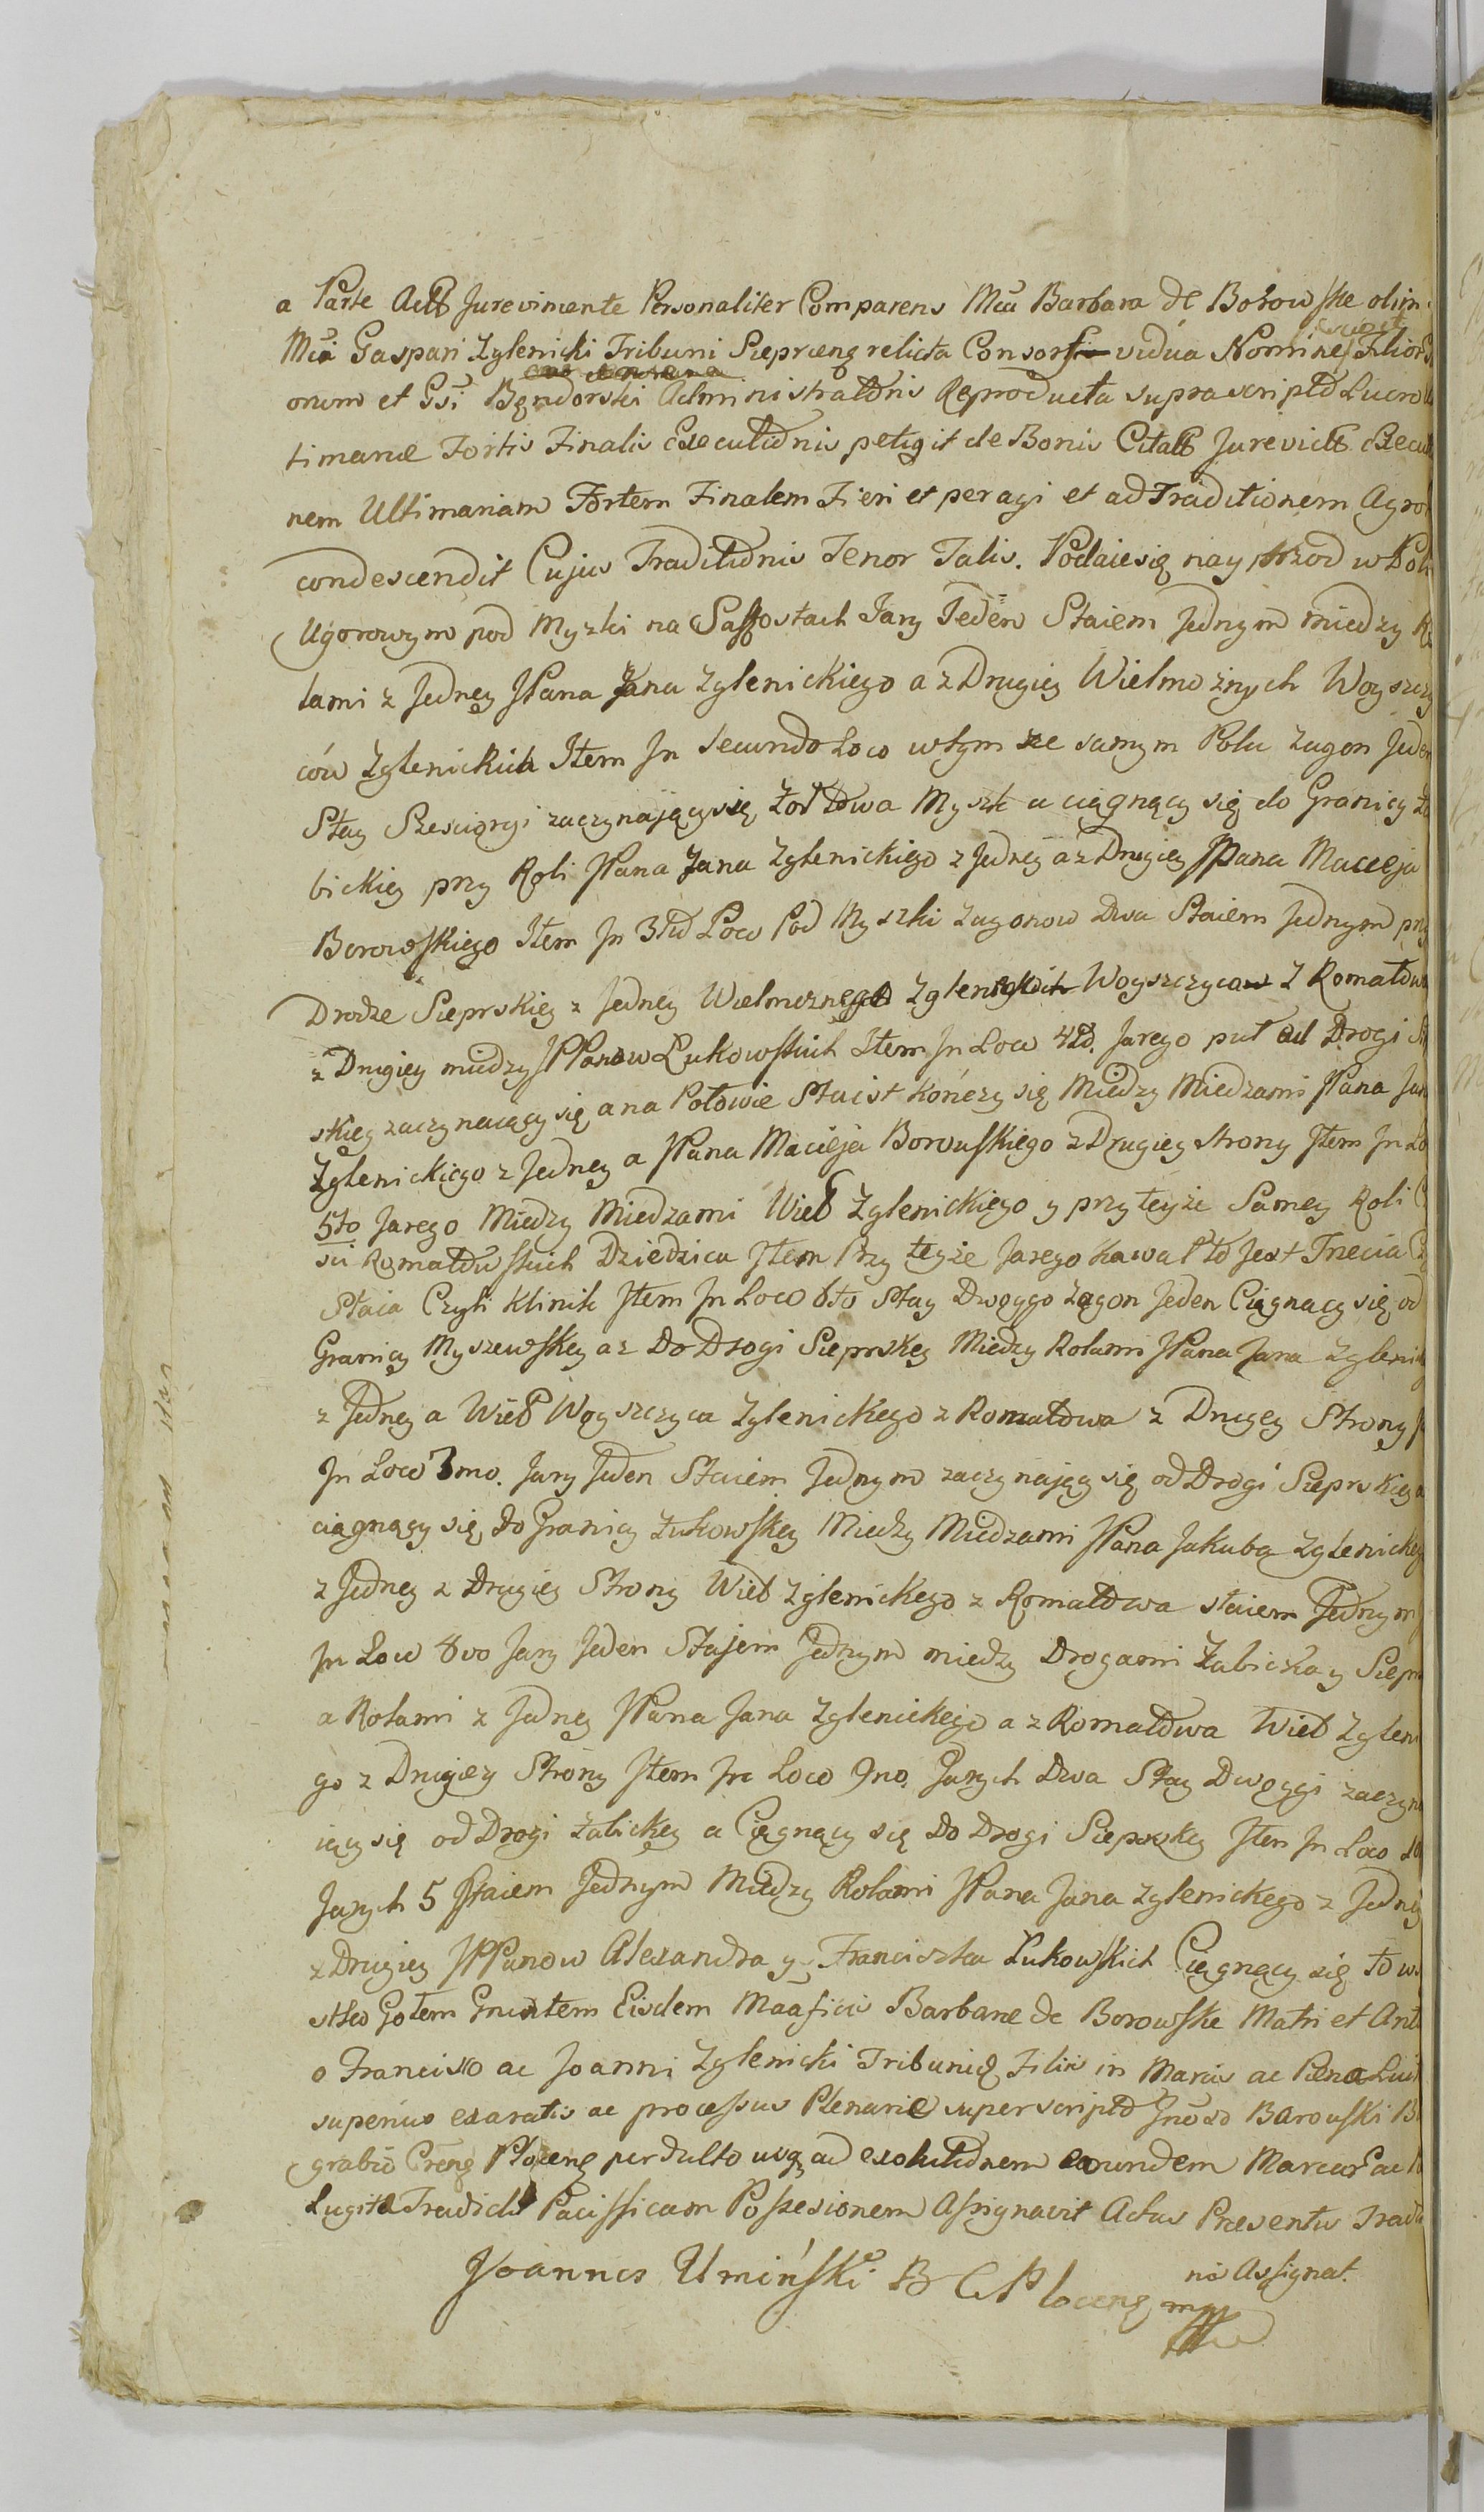 a Parte Actt Jurevincente Personaliter Comparens Mca Barbara de Borowskie olim
Mci Gaspari Zglenicki Tribuni Sieprceng relicta Consors vidua Nomine Filior
orum et Gsi Bendorski Administratoris Reproducta suprascripto Lucro
timaruæ Fortis Finalis Executionis petyit de Bonis Citatt Jurevictt Execu
nem Ultimariam Fortem Finalem Fieri et peragi et ad Traditionem Agro
condescendit Cujus Traditionis Tenor Talis. Podaie się nayprzod w Pol
Ugorowym pod Myszki na Jary Jeden Staiem Jednym miedzy R
lami z Jedney JPana Jana Zglenickiego a z Drugiey Wielmożnych Woyszczy
ców Zglenickich Item Jn Secundo Loco wtym ze samym Polu Zagon Jeden
Stay Szesciorgi zaczynaiący się Myszk a ciągnący się do Granicy Ża
bickiey przy Roli JPana Jana Zglenickiego z Jedney a z Drugiey JPana Macieja
Borowskiego Item Jn 3tio Loco Pod Myszki Zagonow Dwa Staiem Jednym przy
Drodze Sieprskiey z Jedney Wielmoznego Zglenickich Woyszczycow Z Romatowa
z Drugiey miedzy JPPanow Lukowskich Item Jn Loco 4to. Jarego puł od Drogi Si
skiey zaczynaiący się a na Połowie Staist kończy się Miedzy Miedzami JPana Jan
Zglenickiego z Jedney a JPana Macieja Borowskiego z Drugiey strony Item Jn Lo
5to Jarego Miedzy Miedzami Wielb Zglenickiego y przy teyże Samey Roli C
sci Romatowskich Dziedzica Item Przy teyże Jarego Kawał to Jest Trzecia Cz
Staia Czyli Klinik Item Jn Loco 6to Stay Dwoygo Zagon Jeden Ciągnący się od
Granicy Myszewskey az Do Drogi Sieprskey Miedzy Rolami JPana Jana Zglenick
z Jedney a Wielb Woyszczyca Zglenickego z Romatowa z Drugey Strony J
Jn Loco 7mo. Jary Jeden Staiem Jednym zaczynaiący się od Drogi Sieprskiey a
ciągnący się do Granicy Łukowskey Miedzy Miedzami JPana Jakuba Zglenickeg
z Jedney z Drugiey Strony Wielb Zglenickego z Romatowa staiem Jednym
Jn Loco 8vo Jary Jeden Stajem Jednym miedzy Drogami Żabicka y Siepr
a Rolami z Jedney JPana Jana Zglenickego a z Romatowa Wielb Zgleni
go z Drugiey Strony Item Jn Loco 9no. Jarych Dwa Stay Dwoygi zaczyna
iący się od Drogi Żabickey a Ciągnący się Do Drogi Sieprskey Item Jn Loco 10
Jarych 5 Staiem Jednym Miedzy Rolami JPana Jana Zglenickego z Jedney
z Drugiey JPPanow Alexandra y Franciszka Lukowskich Ciągnący się To w
stko Gołem Gruntem Eisdem Maaficis Barbaræ de Borowskie Matri et Anto
o Francisco ac Joanni Zglenicki Tribunid Filiis in Marcis ac Pæna Luit
superius exaratis ac processus Plenarie superscripto Borowski B
grabio Creng Płoceng perdulto usq ad exolutidnem eorundem Marcar ac
Lugit Tradidit Pacifficam Possesionem Assignavit Actus Præsentis Tradi
nis Assignat.
Joannes Umiński B C Ploceng mpp